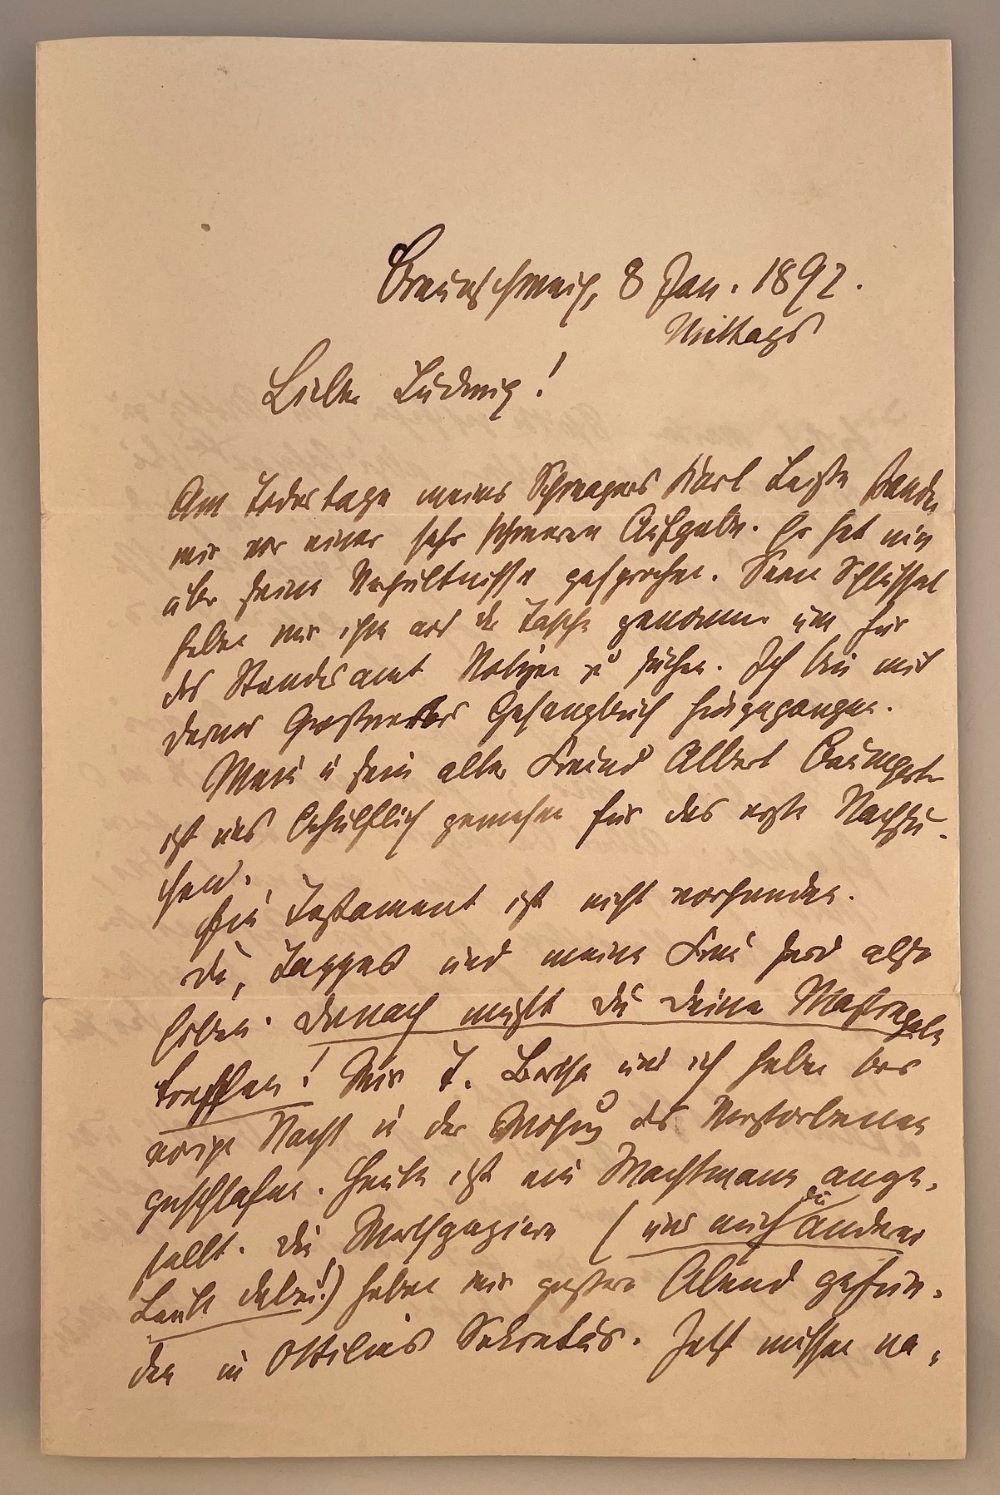 Braunschweig, 8 Jan. 1892.
Mittags
Lieber Ludwig!
Am Todestage meines Schwagers Karl Leiste standen
wir vor einer sehr schweren Aufgabe. Er hat nie
über seine Verhältnisse gesprochen. Seine Schlüssel
haben wir ihm aus der Tasche genommen um für
das Standesamt Notizen zu suchen. Ich bin mit
Deines Grossvaters Gesangbuch hingegangen.
Mein u sein alter Freund Albert Baumgarten
ist uns behülflich gewesen für das erste Nachsu-
chen.
Ein Testament ist nicht vorhanden.
Du, und meine Frau sind also
Erben. Danach musst du deine Massregeln
treffen! Wir T. Bertha und ich haben
vorige Nacht in der Wohnung des Verstorbenen
geschlafen. Heute ist ein Wachtmann ange-
stellt. Die Werthpapiere (und auch die anderen
Leute dabei!) haben wir gestern Abend gefun-
den in Ottilies Sekretär. Jetzt müssen na-